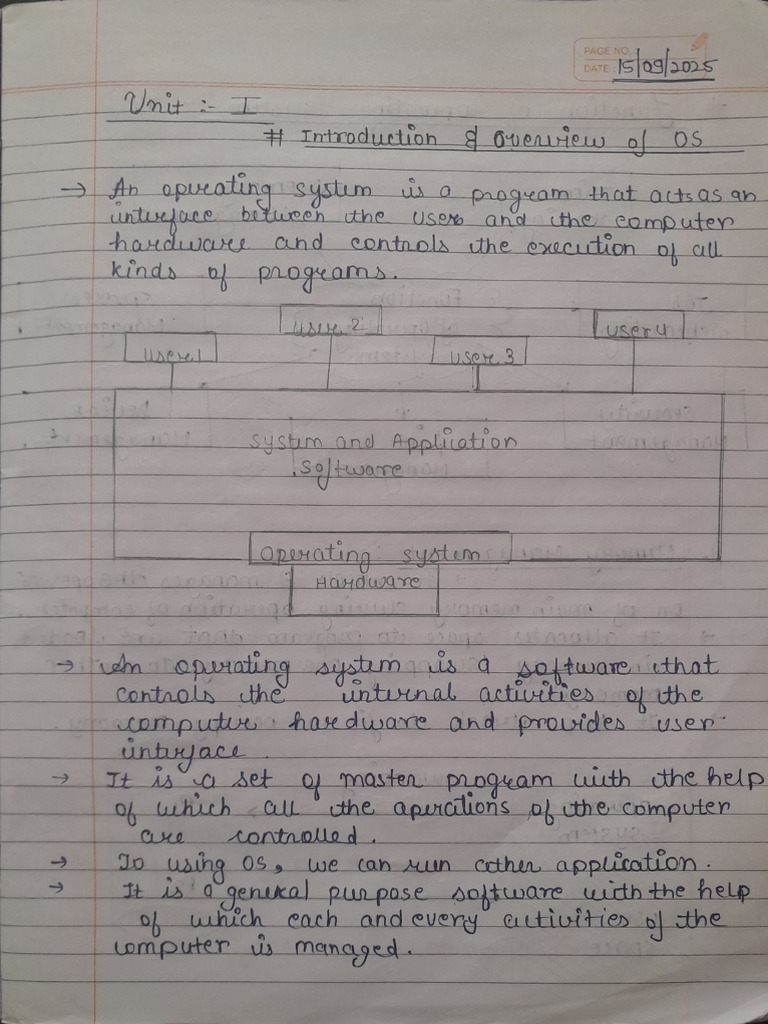 PAGE NO.
DATE: 15/09/2025
Unit :- I
# Introduction & Overview of OS
→ An operating system is a program that acts as an
interface between the user and the computer
hardware and controls the execution of all
kinds of programs.
User 2
User 4
User 1
User 3
System and Application
Software
Operating system
Hardware
→ An operating system is a software that
controls the internal activities of the
computer hardware and provides user
interface.
→ It is a set of master program with the help
of which all the operations of the computer
are controlled.
→ To using OS, we can run other application.
→ It is a general purpose software with the help
of which each and every activities of the
computer is managed.